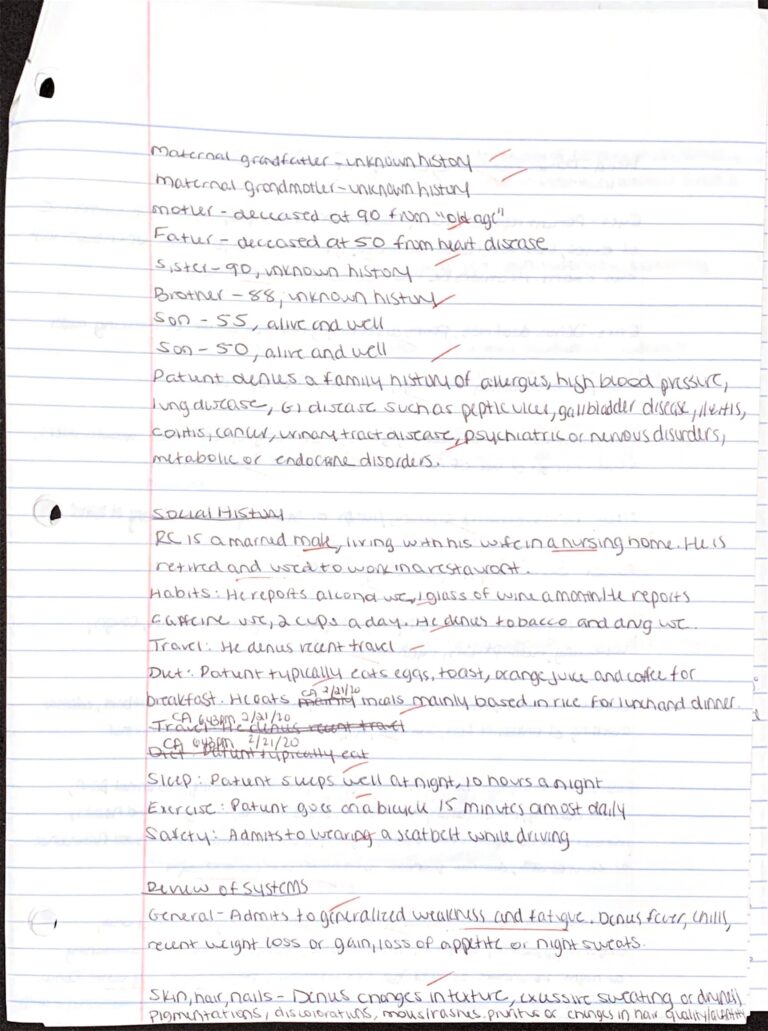 Maternal grandfather - unknown history
Maternal grandmother - unknown history
Mother - deceased at 90 from "old age"
Father - deceased at 50 from heart disease
Sister - 90, unknown history
Brother - 88, unknown history
Son - 55, alive and well
Son - 50, alive and well
Patient denies a family history of allergies, high blood pressure,
lung disease, GI disease such as peptic ulcer, gallbladder disease, ileitis,
colitis, cancer, urinary tract disease, psychiatric or nervous disorders,
metabolic or endocrine disorders.
Social History
RC is a married male, living with his wife in a nursing home. He is
retired and used to work in a restaurant.
Habits: He reports alcohol use, 1 glass of wine a month. He reports
caffeine use, 2 cups a day. He denies tobacco and drug use.
Travel: He denies recent travel
Diet: Patient typically eats eggs, toast, orange juice and coffee for
CA 2/21/20
breakfast. He eats mainly meals mainly based in rice for lunch and dinner.
CA 643pm 2/21/20
Travel: He denies recent travel
CA 643pm 2/21/20
Diet: Patient typically eat
Sleep: Patient sleeps well at night, 10 hours a night
Exercise: Patient goes on a bicycle 15 minutes almost daily
Safety: Admits to wearing a seatbelt while driving
Review of Systems
General - Admits to generalized weakness and fatigue. Denies fever, chills,
recent weight loss or gain, loss of appetite or night sweats.
Skin, hair, nails - Denies changes in texture, excessive sweating or dryness,
pigmentations, discolorations, moles/rashes, pruritus or changes in hair quality/quantity